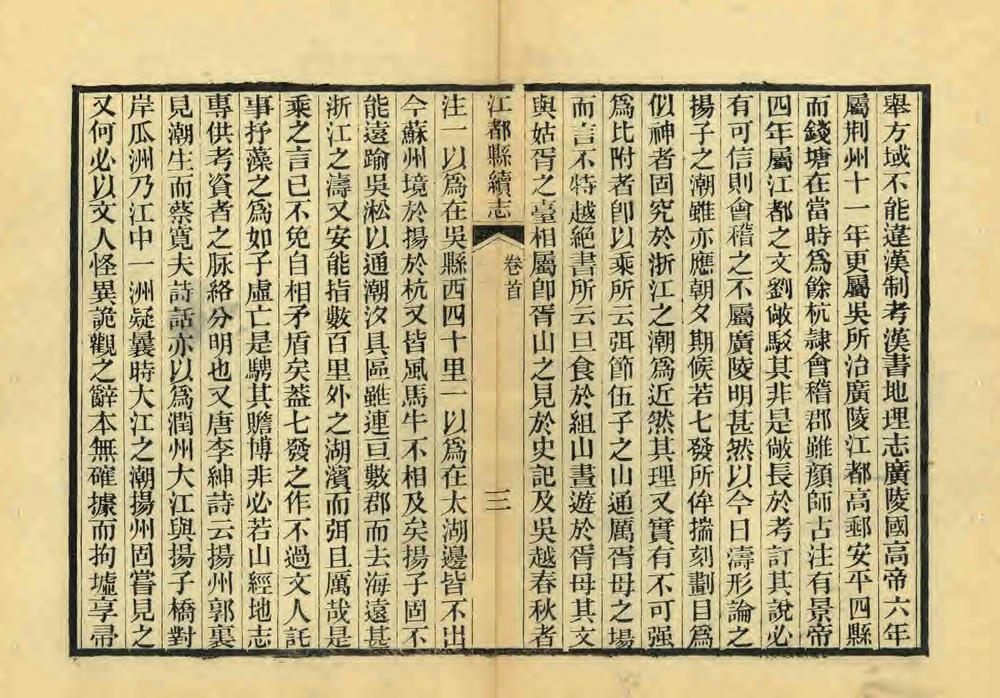 舉方域不能違漢制考漢書地理志廣陵國高帝六年
屬荆州十一年更屬吳所治廣陵江都高郵安平四縣
而錢塘在當時爲餘杭隸會稽郡雖顏師古注有景帝
四年屬江都之文劉敞駁其非是敞長於考訂其說必
有可信則會稽之不屬廣陵明甚然以今日濤形論之
揚子之潮雖亦應朝夕期候若七發所侔揣刻劃目爲
似神者固究於浙江之潮爲近然其理又實有不可强
爲比附者卽以乘所云弭節伍子之山通厲胥母之場
而言不特越絕書所云旦食於組山晝遊於胥母其文
與姑胥之臺相屬卽胥山之見於史記及吳越春秋者
江都縣續志
卷首
三
注一以爲在吳縣西四十里一以爲在太湖邊皆不出
今蘇州境於揚於杭又皆風馬牛不相及矣揚子固不
能遠踰吳淞以通潮汐具區雖連亘數郡而去海遠甚
浙江之濤又安能指數百里外之湖濱而弭且厲哉是
乘之言已不免自相矛盾矣葢七發之作不過文人託
事抒藻之爲如子虛亡是騁其贍博非必若山經地志
專供考資者之脈絡分明也又唐李紳詩云揚州郭裏
見潮生而蔡寬夫詩話亦以爲潤州大江與揚子橋對
岸瓜洲乃江中一洲疑曩時大江之潮揚州固嘗見之
又何必以文人怪異詭觀之辭本無確據而拘墟享帚